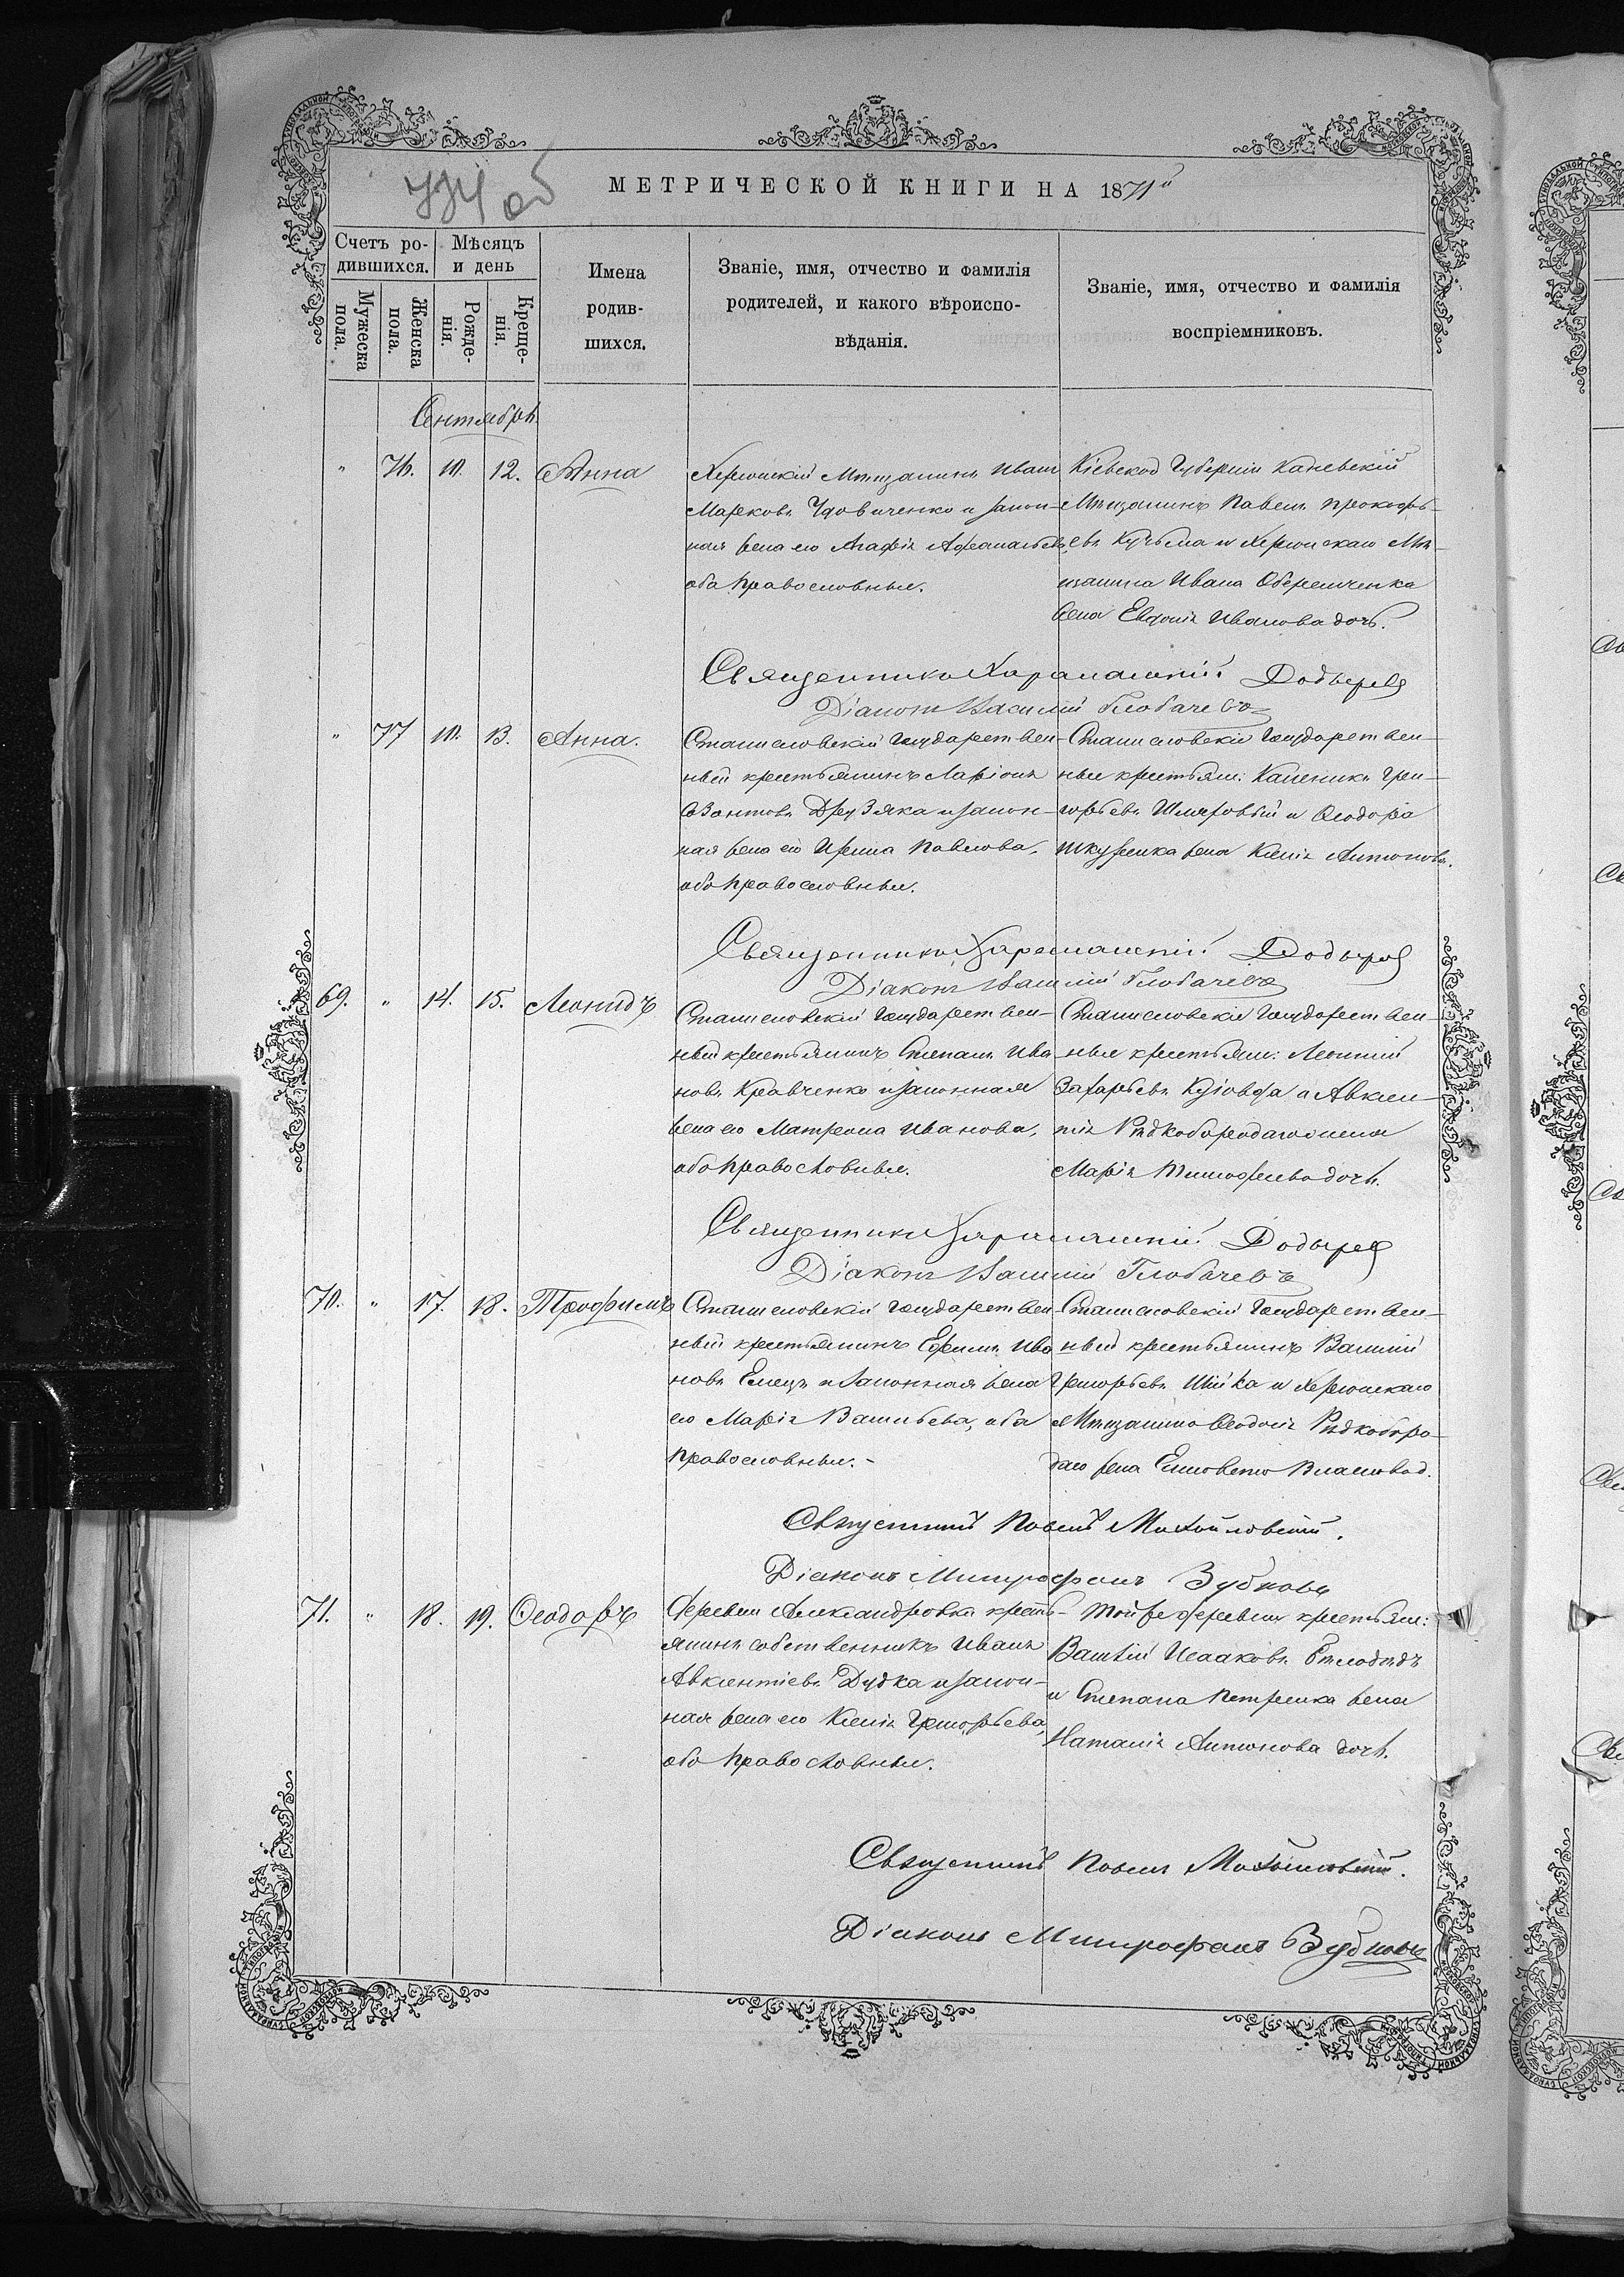 774 об
МЕТРИЧЕСКОЙ КНИГИ НА 1871й
Счетъ ро-
дившихся.
Мужеска
пола.
Женска
пола.
Мѣсяцъ
и день
Рожде-
нія.
Креще-
нія.
Имена
родив-
шихся.
Званіе, имя, отчество и фамилія
родителей, и какого вѣроиспо-
вѣданія.
Званіе, имя, отчество и фамилія
воспріемниковъ.
Сентябрь
" 76. 10. 12. Анна
Херсонскій Мѣщанинъ Иванъ
Марковъ Удовиченко и закон-
ная жена его Агафія Афанасьева
оба православные.
Кіевской Губерніи Каневскій
Мѣщанинъ Павелъ Прокофь-
евъ Кузьма и Херсонскаго Мѣ-
щанина Ивана Оберемченка
жена Евдокія Иванова дочь.
Священникъ Харалампій
Діаконъ Василій Глобачевъ
" 77 10. 13. Анна.
Станиславскій Государствен-
ный крестьянинъ Ларіонъ
Друзяка и закон-
ная жена его Ирина Павлова,
оба православные.
Станиславскіе Государствен-
ные крестьян: Каленикъ Гри-
горьевъ и Феодора
Шкуренка жена Ксенія Антонова.
Священникъ Харалампій
Діаконъ Василій Глобачевъ
69. " 14. 15. Леонидъ
Станиславскій Государствен-
ный крестьянинъ Степанъ Ива-
новъ Кравченко и законная
жена его Матрона Иванова,
оба православные.
Станиславскіе Государствен-
ные крестьян: Леонтій
Захарьевъ и Авксен-
тія Рѣдкобородаго жена
Марія Тимофеева дочь.
Священникъ Харалампій
Діаконъ Василій Глобачевъ
70. " 17. 18. Трофимъ
Станиславскій Государствен-
ный крестьянинъ Ефимъ Ива
новъ Елецъ и законная жена
его Марія Васильева, оба
православные.-
Станиславскій Государствен-
ный крестьянинъ Василій
Григорьевъ Шійка и Херсонскаго
Мѣщанина Феодосія Рѣдкоборо-
даго жена Елисовета Власова д.
Священникъ Павелъ Михайловскій.
Діаконъ Митрофанъ Зубковъ
71. " 18. 19. Феодоръ
Деревни Александровки кресть-
янинъ собственникъ Иванъ
Авксентіевъ Дудка и закон-
ная жена его Ксенія Григорьева,
оба православные.
Той же деревни крестьян:
Василій Исааковъ Бѣлодѣдъ
и Степана Петренка жена
Наталія Антонова дочь.
Священникъ Павелъ Михайловскій.
Діаконъ Митрофанъ Зубковъ